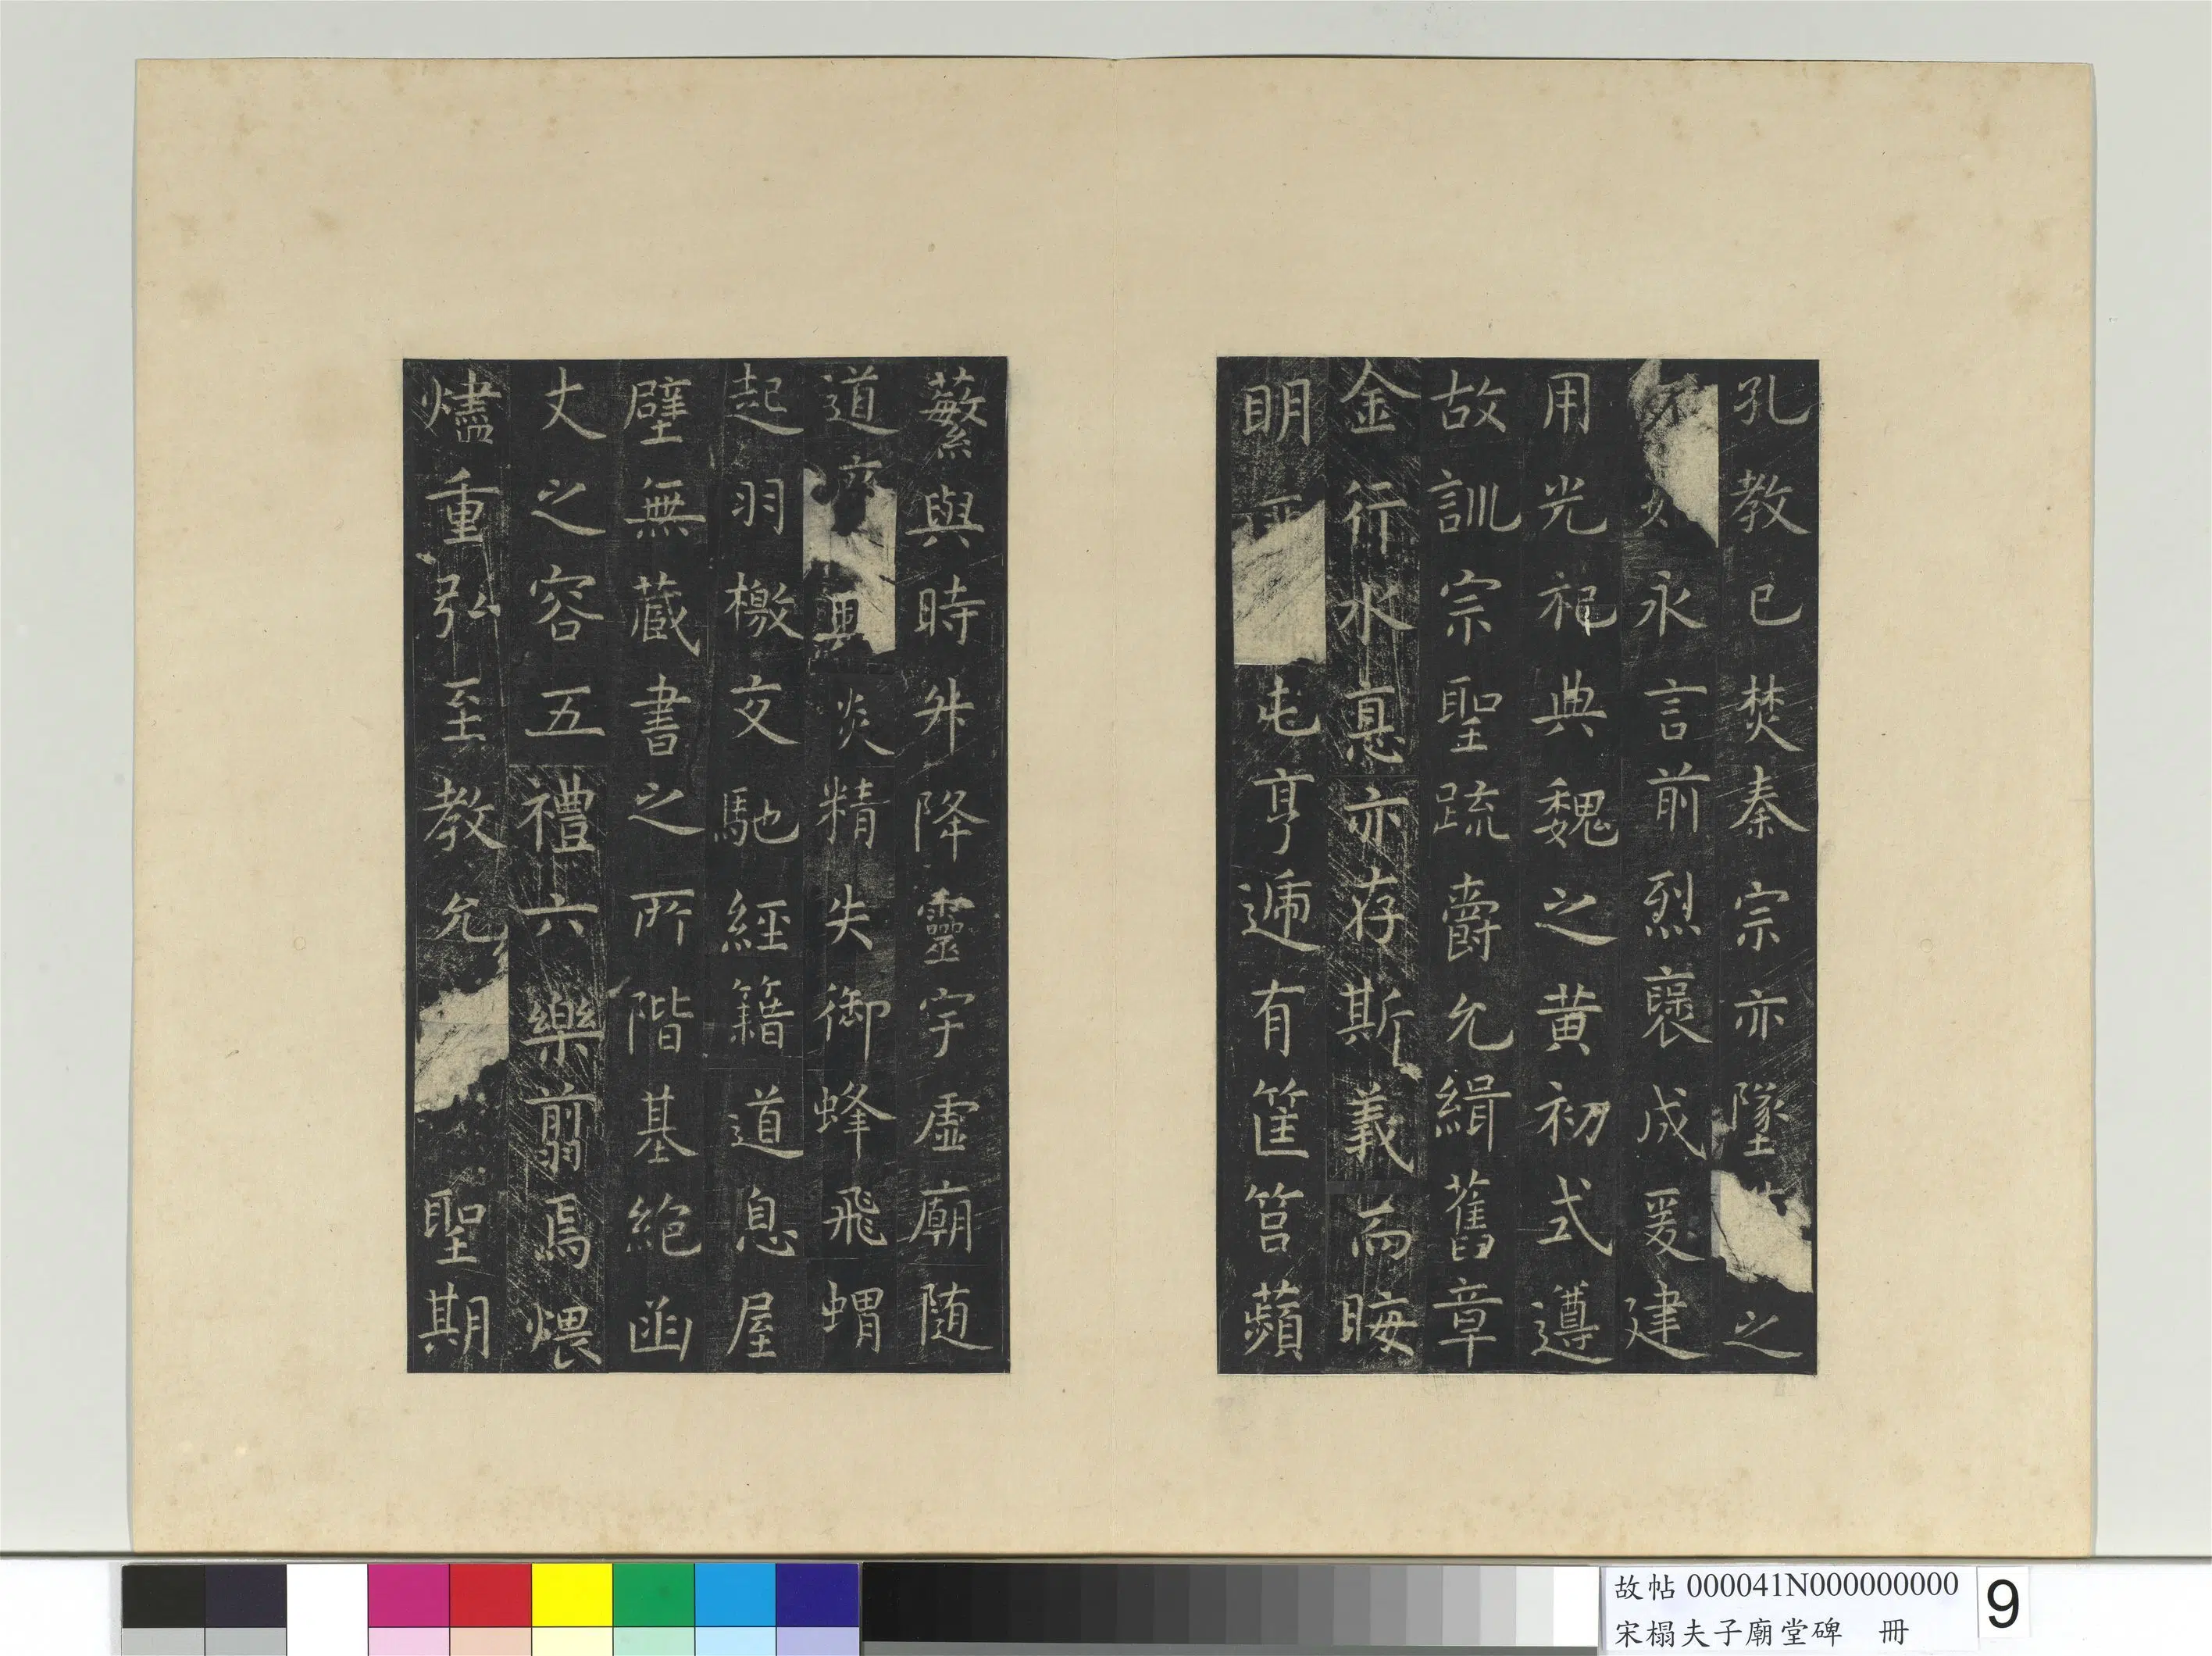 孔教已焚秦宗亦墜之
永言前烈襃成爰建
用光祀典魏之黃初式遵
故訓宗聖疏爵允緝舊章
金行水德亦存斯義而晦
明屯亨遞有筐筥蘋
蘩與時升降靈宇虛廟隨
道廢興炎精失御蜂飛蝟
起羽檄交馳經籍道息屋
壁無藏書之所階基絕函
丈之容五禮六樂翦焉煨
燼重弘至教允聖期
故帖 000041N000000000
宋榻夫子廟堂碑 冊
9